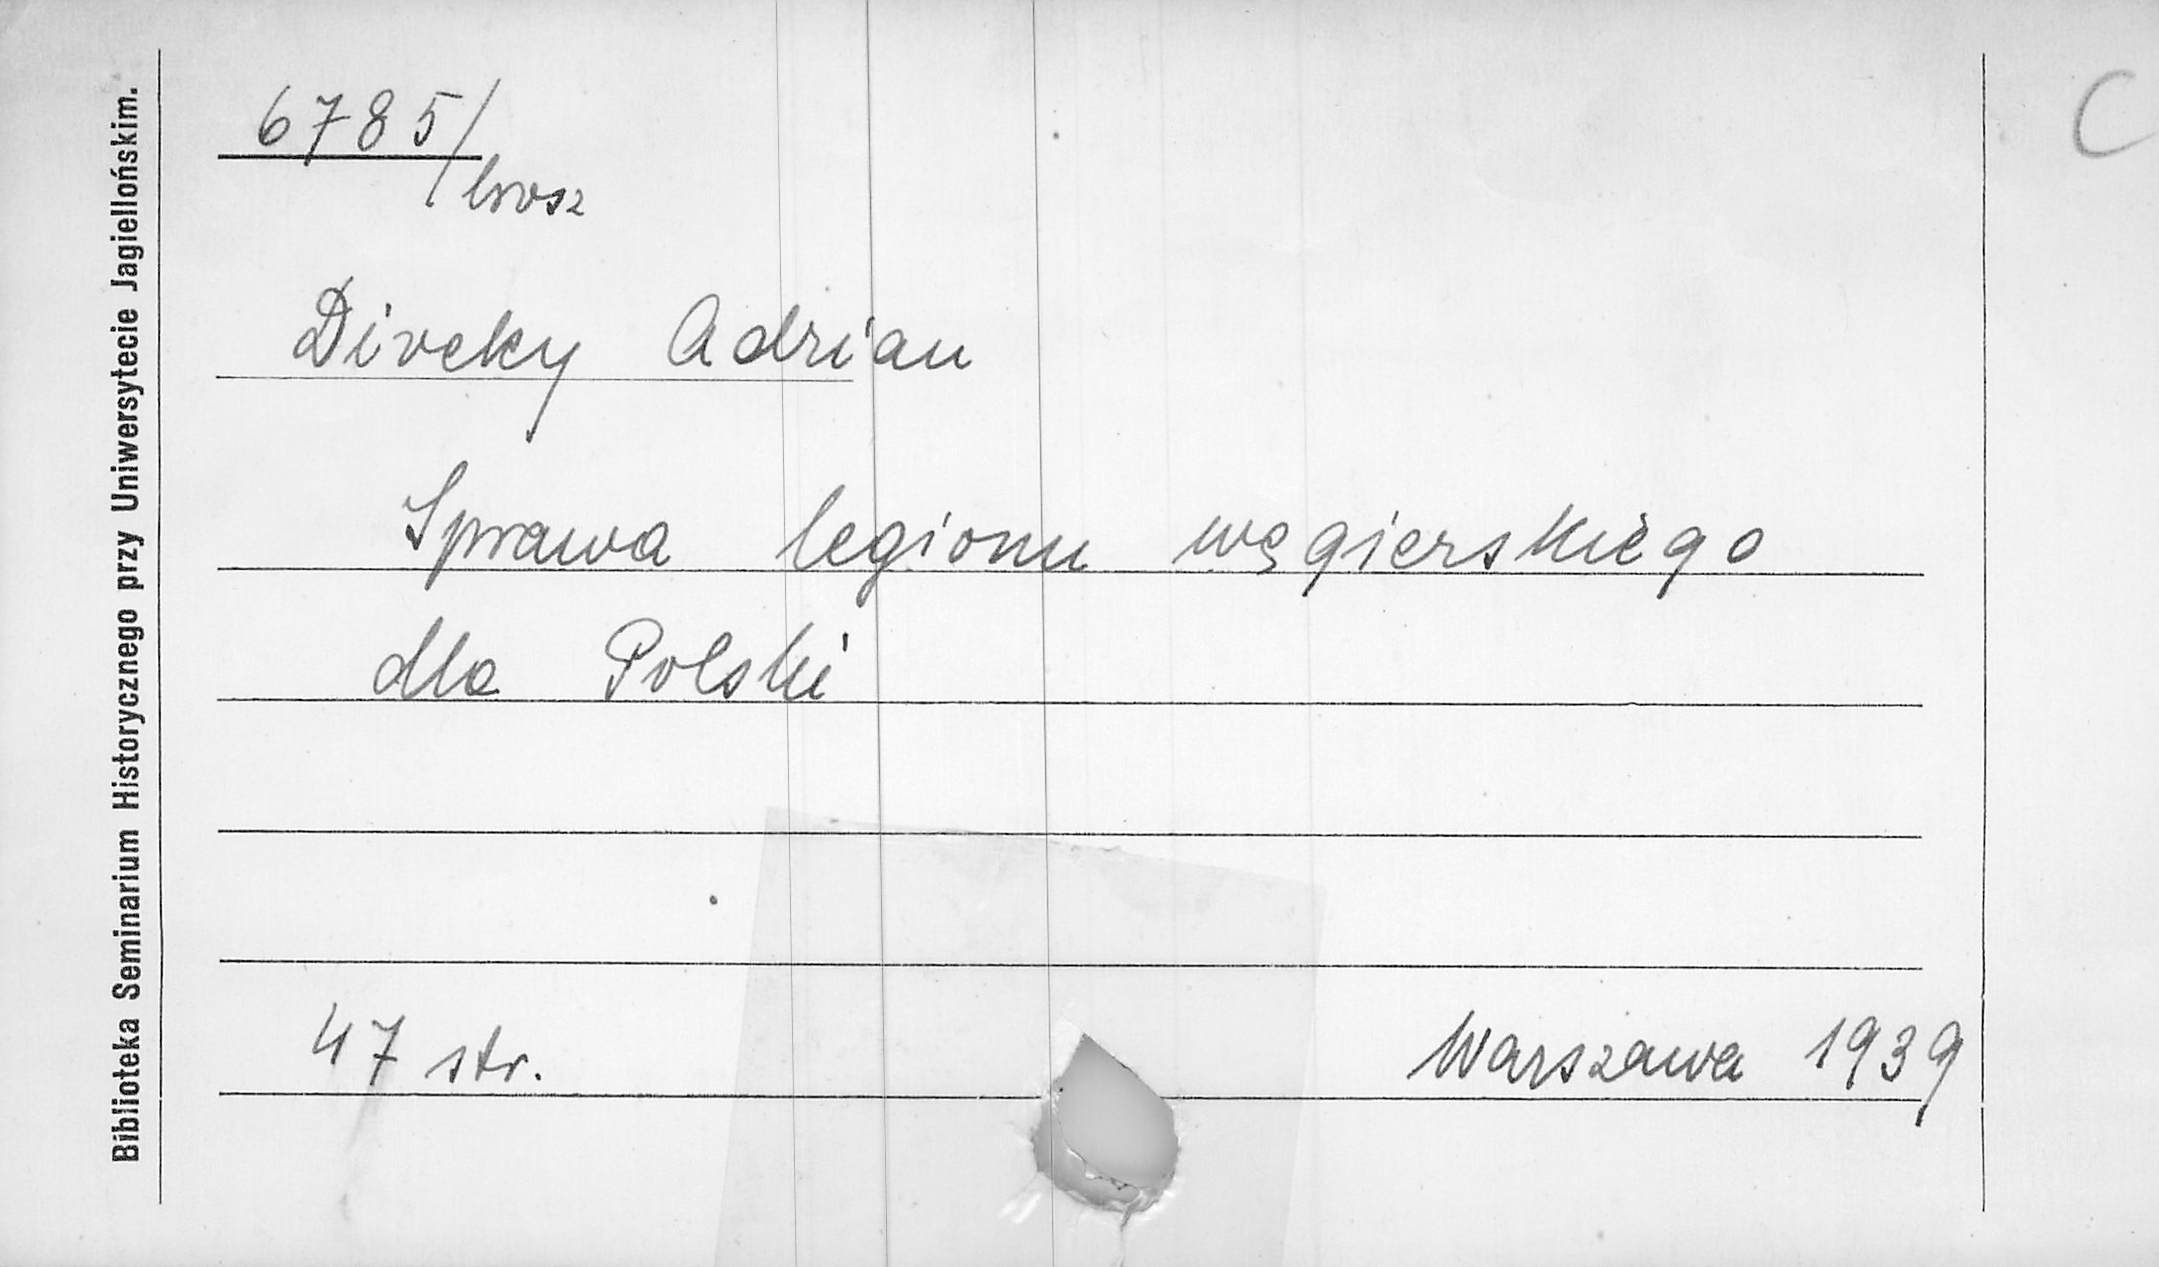 C
6785/brosz
Diveky Adrian
Sprawa legionu węgierskiego
dla Polski
47 str.
Warszawa 1939
Biblioteka Seminarium Historycznego przy Uniwersytecie Jagiellońskim.